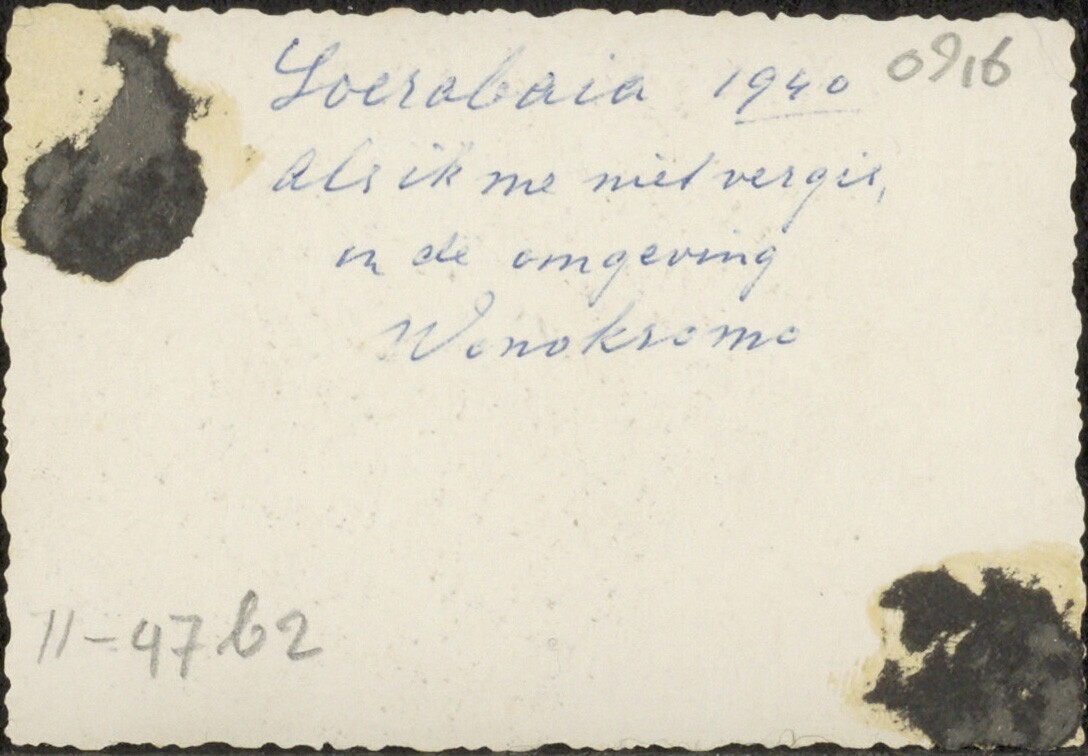 Soerabaia 1940 0916
Als ik me niet vergis,
in de omgeving
Wonokromo
11-47 b2